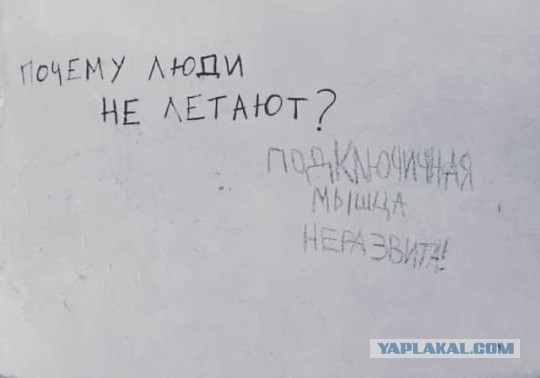 ПОЧЕМУ ЛЮДИ
НЕ ЛЕТАЮТ?
ПОДКЛЮЧИЧНАЯ
МЫШЦА
НЕРАЗВИТА!
YAPLAKAL.COM